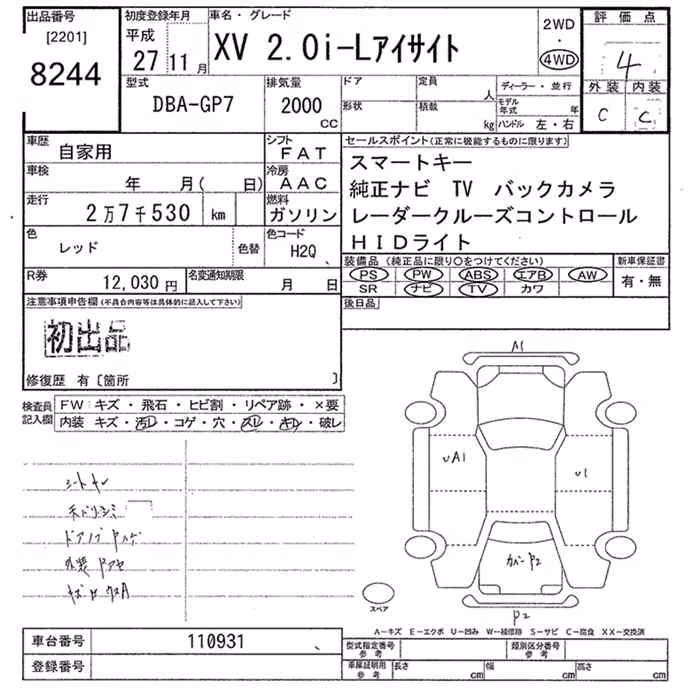 出品番号
[2201]
8244
初度登録年月
平成
27 11 月
車名・グレード
XV 2.0i-Lアイサイト
2WD
・
4WD
評価点
4
外装 内装
C C
型式
DBA-GP7
排気量
2000
CC
ドア
定員
人
形状
積載
kg
ディーラー・並行
モデル年式 年
ハンドル 左・右
車歴
自家用
シフト
FAT
車検
年 月( 日)
冷房
AAC
走行
2万7千530 km
燃料
ガソリン
色
レッド
色替
色コード
H2Q
R券
12,030 円
名変通知期限
月 日
セールスポイント(正常に機能するものに限ります)
スマートキー
純正ナビ TV バックカメラ
レーダークルーズコントロール
HIDライト
装備品 (純正品に限り○をつけてください)
PS PW ABS エアB AW
SR ナビ TV カワ
新車保証書
有・無
後日品
注意事項申告欄(不具合内容等は具体的に記入して下さい)
初出品
修復歴 有〔箇所 〕
検査員
記入欄
FW キズ・飛石・ヒビ割・リペア跡・×要
内装 キズ・汚レ・コゲ・穴・スレ・キレ・破レ
A1
UA1
U1
カバーP2
P2
スペア
A―キズ E―エクボ U―凹み W―補修跡 S―サビ C―腐食 XX―交換済
車台番号
110931
登録番号
型式指定番号
参考
類別区分番号
参考
車庫証明用
参考
長さ cm
幅 cm
高さ cm